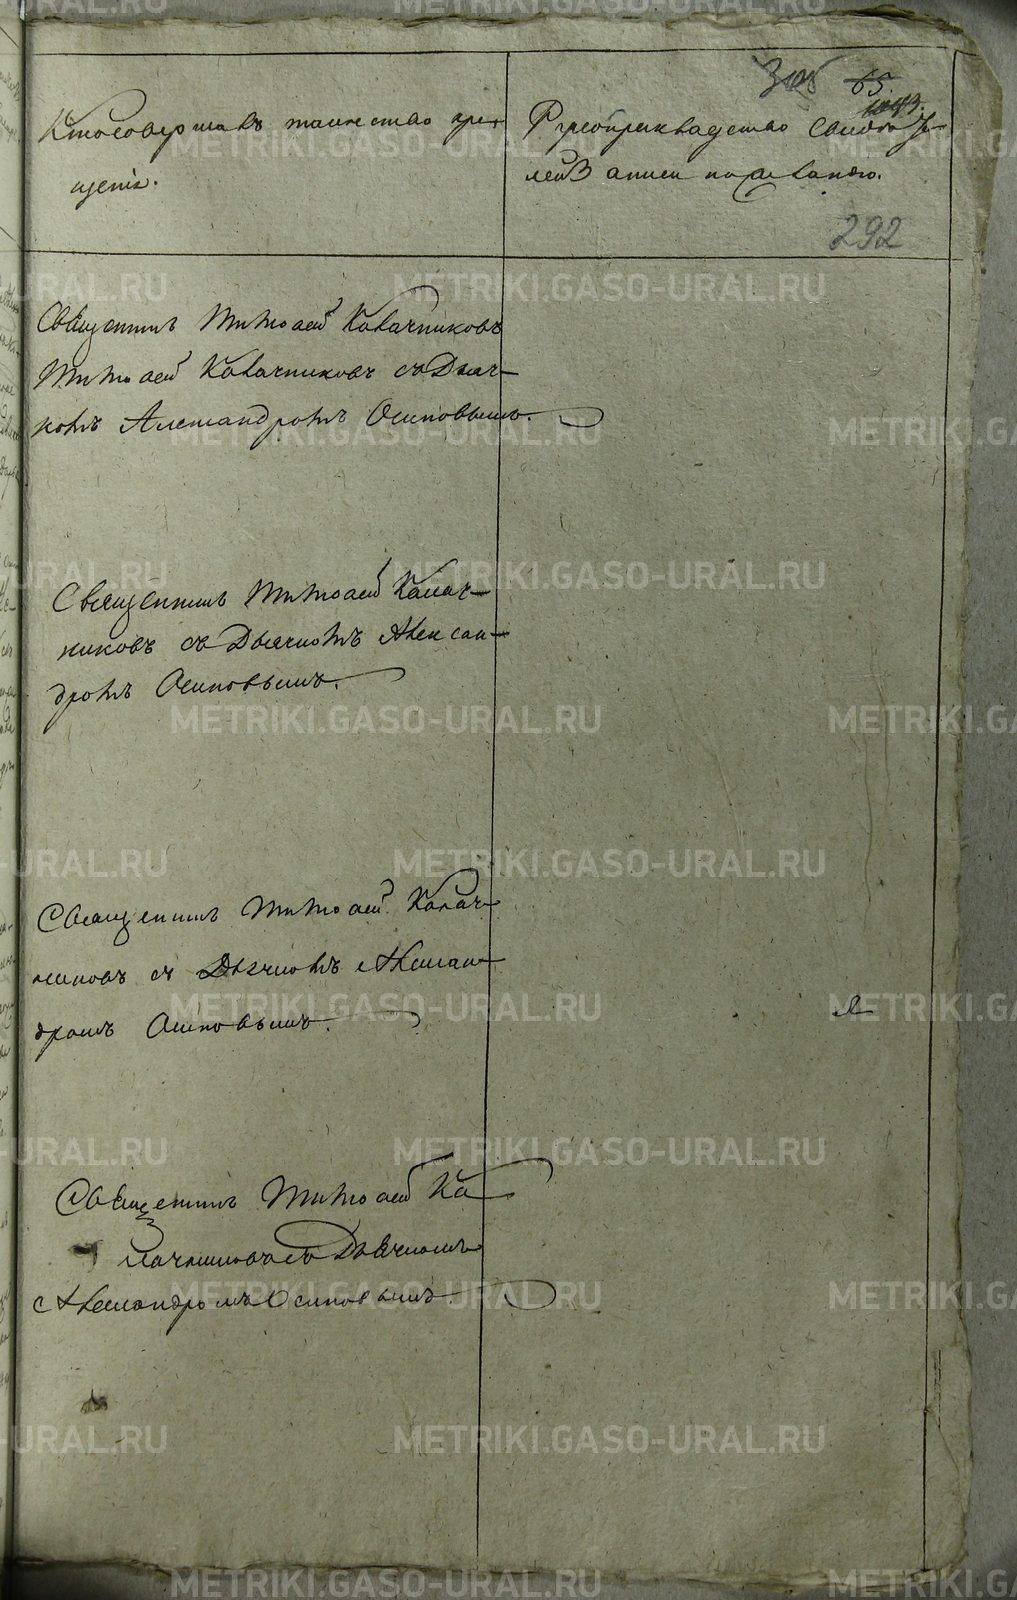 65.
Кто совершалъ таинство кре-
щенія.
Рукоприкладство Свидѣте-
лей Записи по желанію.
292
Священникъ Тимофей Калачниковъ
Тимофей Калачниковъ съ Дьяч-
комъ Александромъ Осиповымъ.
Священникъ Тимофей Калач-
никовъ съ Дьячкомъ Алексан-
дромъ Осиповымъ.
Священникъ Тимофей Калач-
никовъ съ Дьячкомъ Алексан-
дромъ Осиповымъ.
Священникъ Тимофей Ка
лачниковъ съ Дьячкомъ
Александромъ Осиповымъ.
METRIKI.GASO-URAL.RU